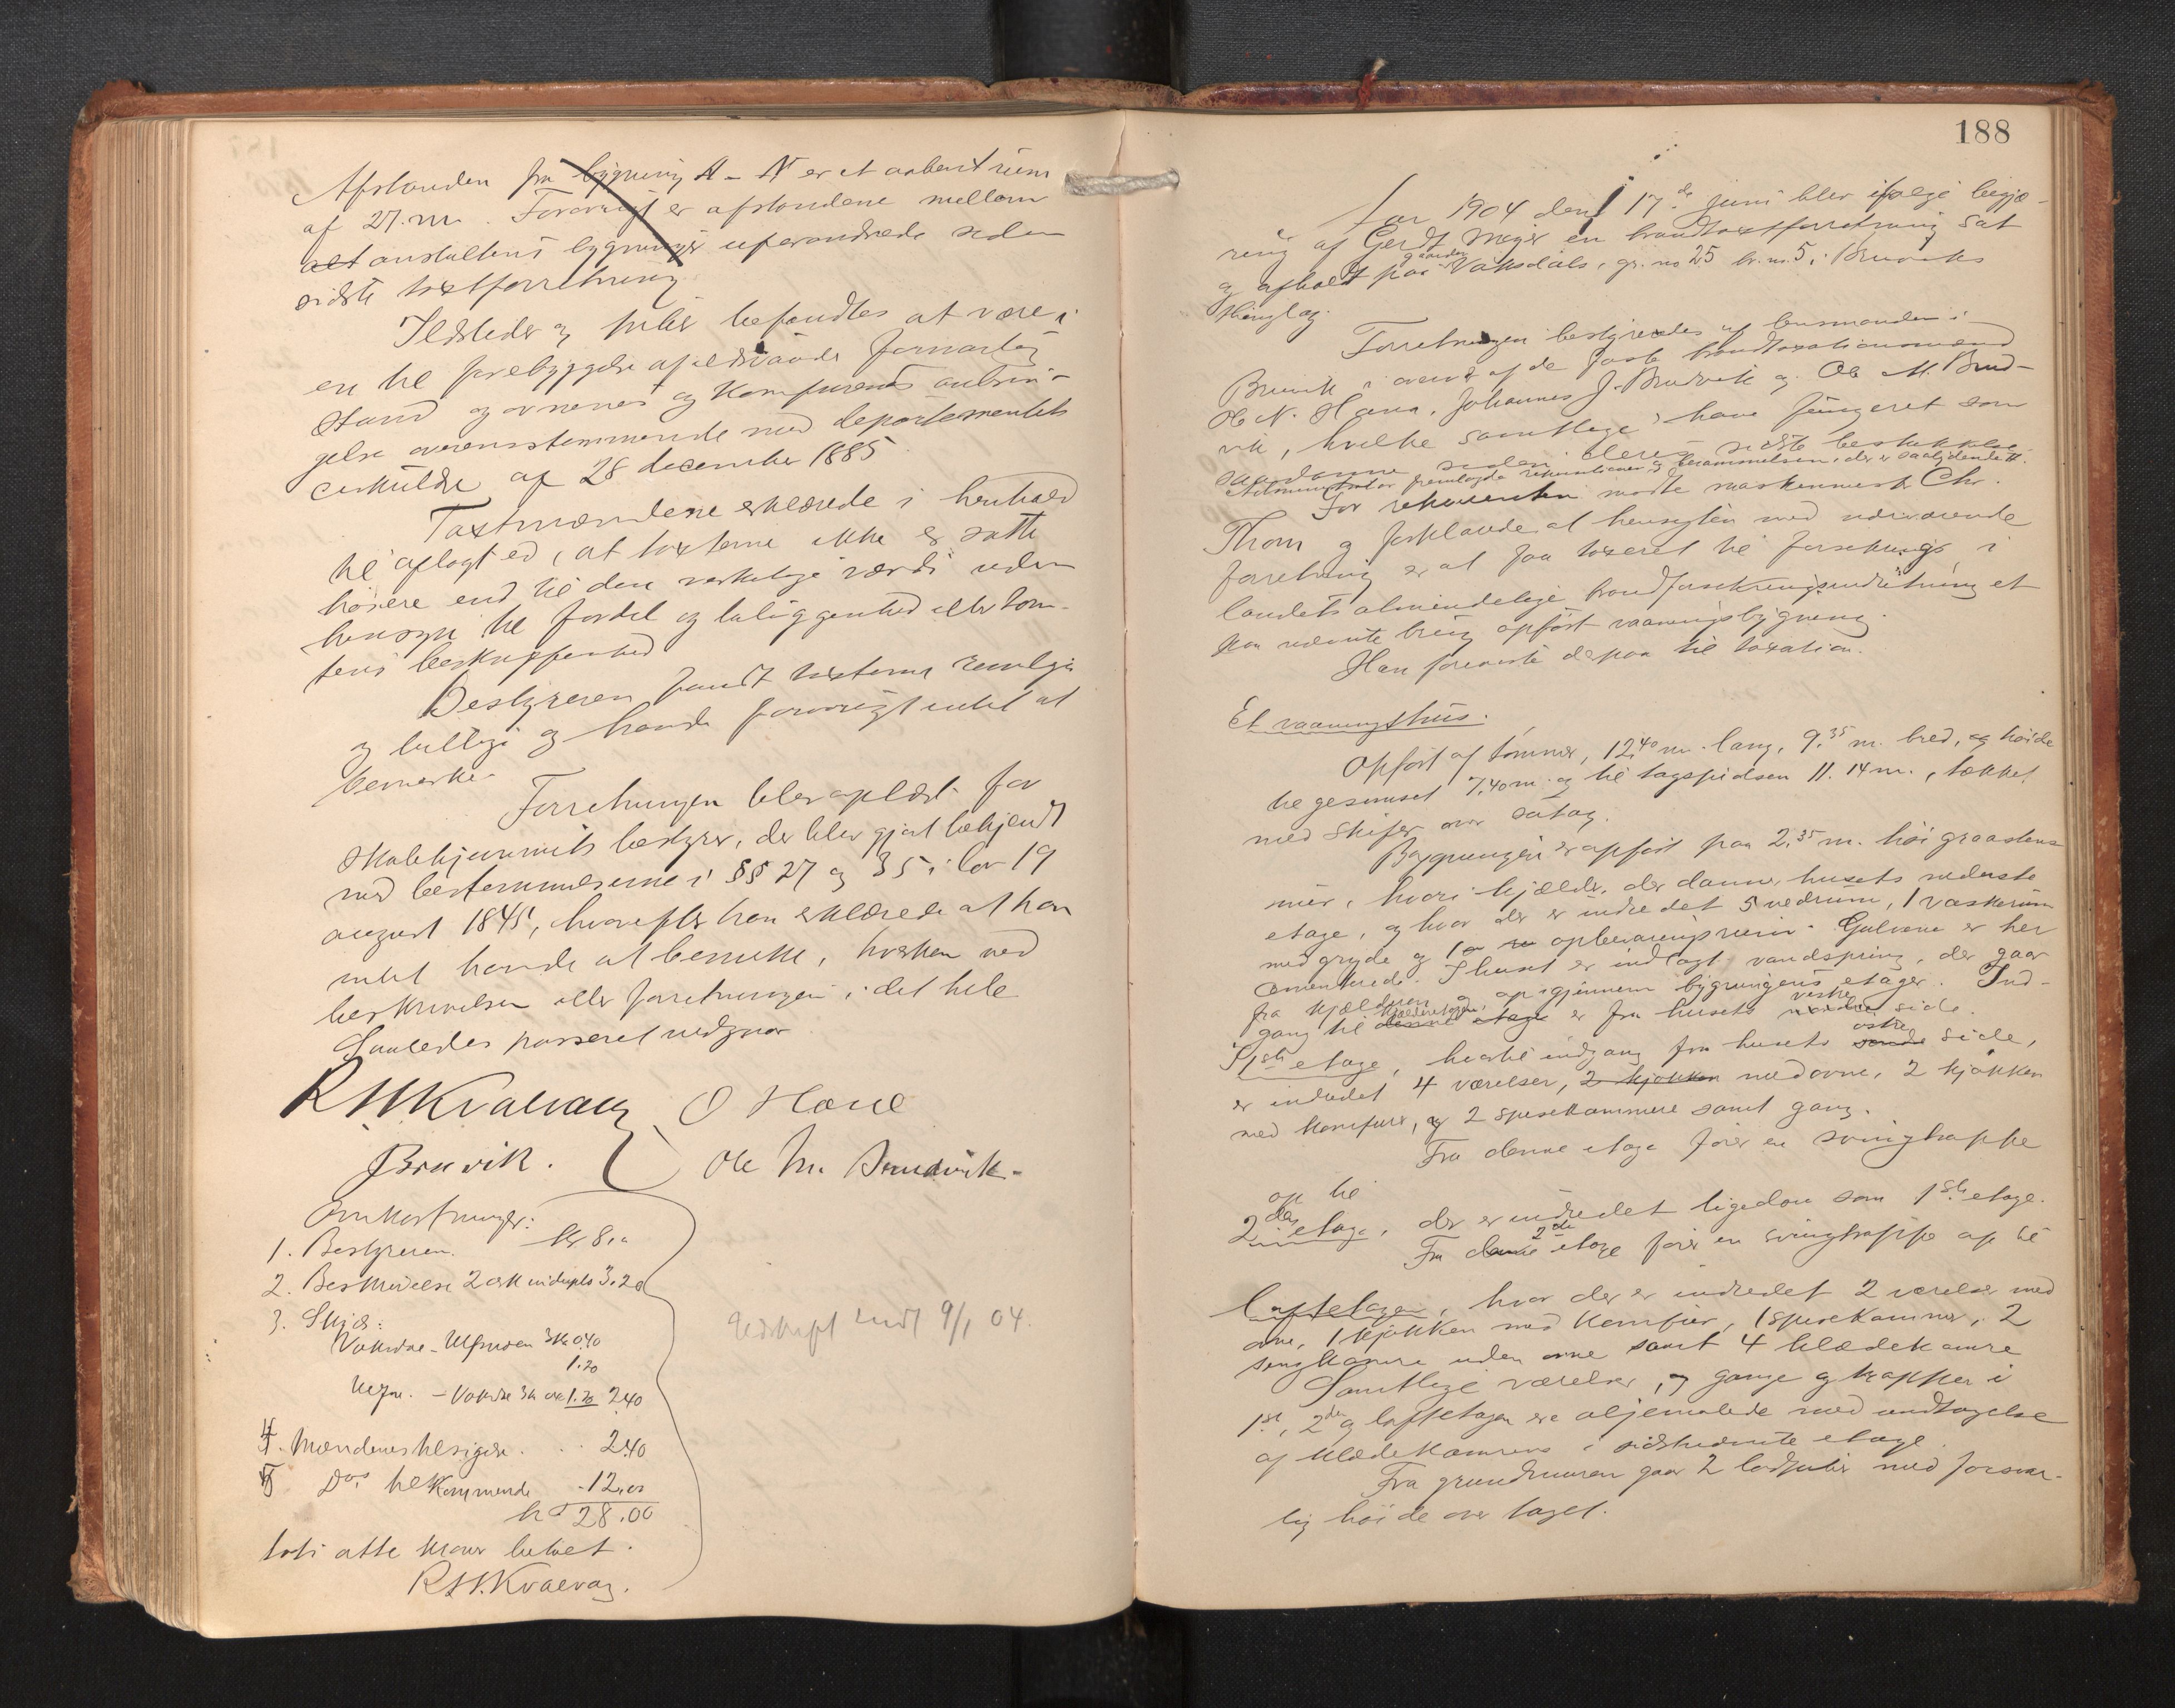 Afstanden fra bygning A - N er et aabent rum
af 27. m. Forøvrigt er afstandene mellem
alt anstaltens bygninger uforandrede siden
sidste taxtforretning
Ildsteder og piber befandtes at være i
en til forebyggelse af ildsvaade forsvarlig
stand og ovnenes og komfurenes anbrin-
gelse overensstemmende med departementets
cirkulære af 28 december 1885.
Taxtmændene erklærede i henhold
til aflagt ed, at taxterne ikke er satte
høiere end til den virkelige værdi uden
hensyn til fordel og beliggenhed eller tom-
tens beskaffenhed
Bestyreren fandt taxterne rimelige
og billige og havde forøvrigt intet at
bemerke.
Forretningen blev oplæst for
Skolehjemmets bestyrer, der blev gjort bekjendt
med bestemmelserne i §§ 27 og 35 i lov 19
august 1845, hvorefter han erklærede at han
intet havde at bemerke, hverken ved
beskrivelsen eller forretningen i det hele
Saaledes passeret vedgaar
R H Kvalvaag O Hane
J Bruvik. Ole M. Brudvik.
Omkostninger:
1. Bestyreren. Kr 8,00
2. Beskrivelse 2 ark in duplo 3.20
3. Skyds:
Vaksdal - 3 Km 0.40
1.20
- Vaksdal 3 Km 1.20 2.40
4. Mændenes tilsigelse . . . 2.40
5 Do tilkommende - 12,00
kr 28.00
toti otte kroner betalt.
R H. Kvalvaag.
Udskrift sendt 9/1 04.
188
Aar 1904 den 17de juni blev ifølge begjæ-
ring af Gerdt Meyer en brandtaxtforretning sat
og afholdt paa gaarden Vaksdal, gr. no 25 br. n. 5 i Bruviks
thinglag.
Forretningen bestyredes af lensmanden i
Bruvik i overvær af de faste brandtaxationsmænd
Ole N. Hana, Johannes J. Brudvik og Ole M. Brud-
vik, hvilke samtlige have fungeret som
saadanne siden deres sidste beskikkelse
Administrator fremlagde rekvisitionen og berammelsen, der er saalydende #.
For rekvirenten mødte maskinmester Chr.
Thom og forklarede at hensigten med nærværende
forretning er at faa taxeret til forsikring i
landets almindelige brandforsikringsindretning et
paa nævnte brug opført vaaningsbygning.
Han foreviste derpaa til taxation.
Et vaaningshus.
Opført af tømmer, 12,40 m. lang, 9,35 m. bred, og høide
til gesimset 7,40 m og til tagspidsen 11.14 m., tækket
med skifer over satag.
Bygningen er opført paa 2,35 m. høi graastens
mur, hvori kjælder, der danner husets nederste
etage, og hvor der er indredet 5 vedrum, 1 vaskerum
med gryde og 1 opbevaringsrum. Gulvene er her
cementerede. I huset er indlagt vandspring, der gaar
fra kjælderen og op igjennem bygningens etager. Ind-
gang til denne etage kjælderetagen er fra husets nordre vestre side.
I 1ste etage, hvortil indgang fra husets søndre østre side,
er indredet 4 værelser, 2 kjøkken med ovne, 2 kjøkken
med komfurer, og 2 spisekammere samt gang.
Fra denne etage fører en svingtrappe
op til
2den etage, der er indredet ligedan som 1ste etage.
Fra denne 2de etage fører en svingtrappe op til
Loftetagen, hvor der er indredet 2 værelser med
ovne, 1 kjøkken med komfur, 1 spisekammer, 2
sengkamre uden ovne samt 4 klædekamre
Samtlige værelser, og gange og trapper i
1ste, 2den og loftetagen ere oljemalede med undtagelse
af klædekamrene i sidstnævnte etage.
Fra grundmuren gaar 2 lodpiber med forsvar-
lig høide over taget.